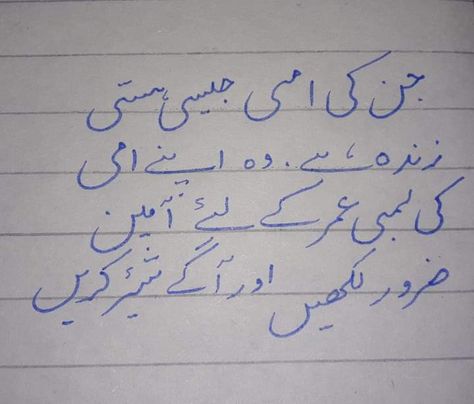 جن کی امی جیسی ہستی
زندہ ہے. وہ اپنے امی
کی لمبی عمر کے لئے آمین
ضرور لکھیں اور آگے شیئر کریں